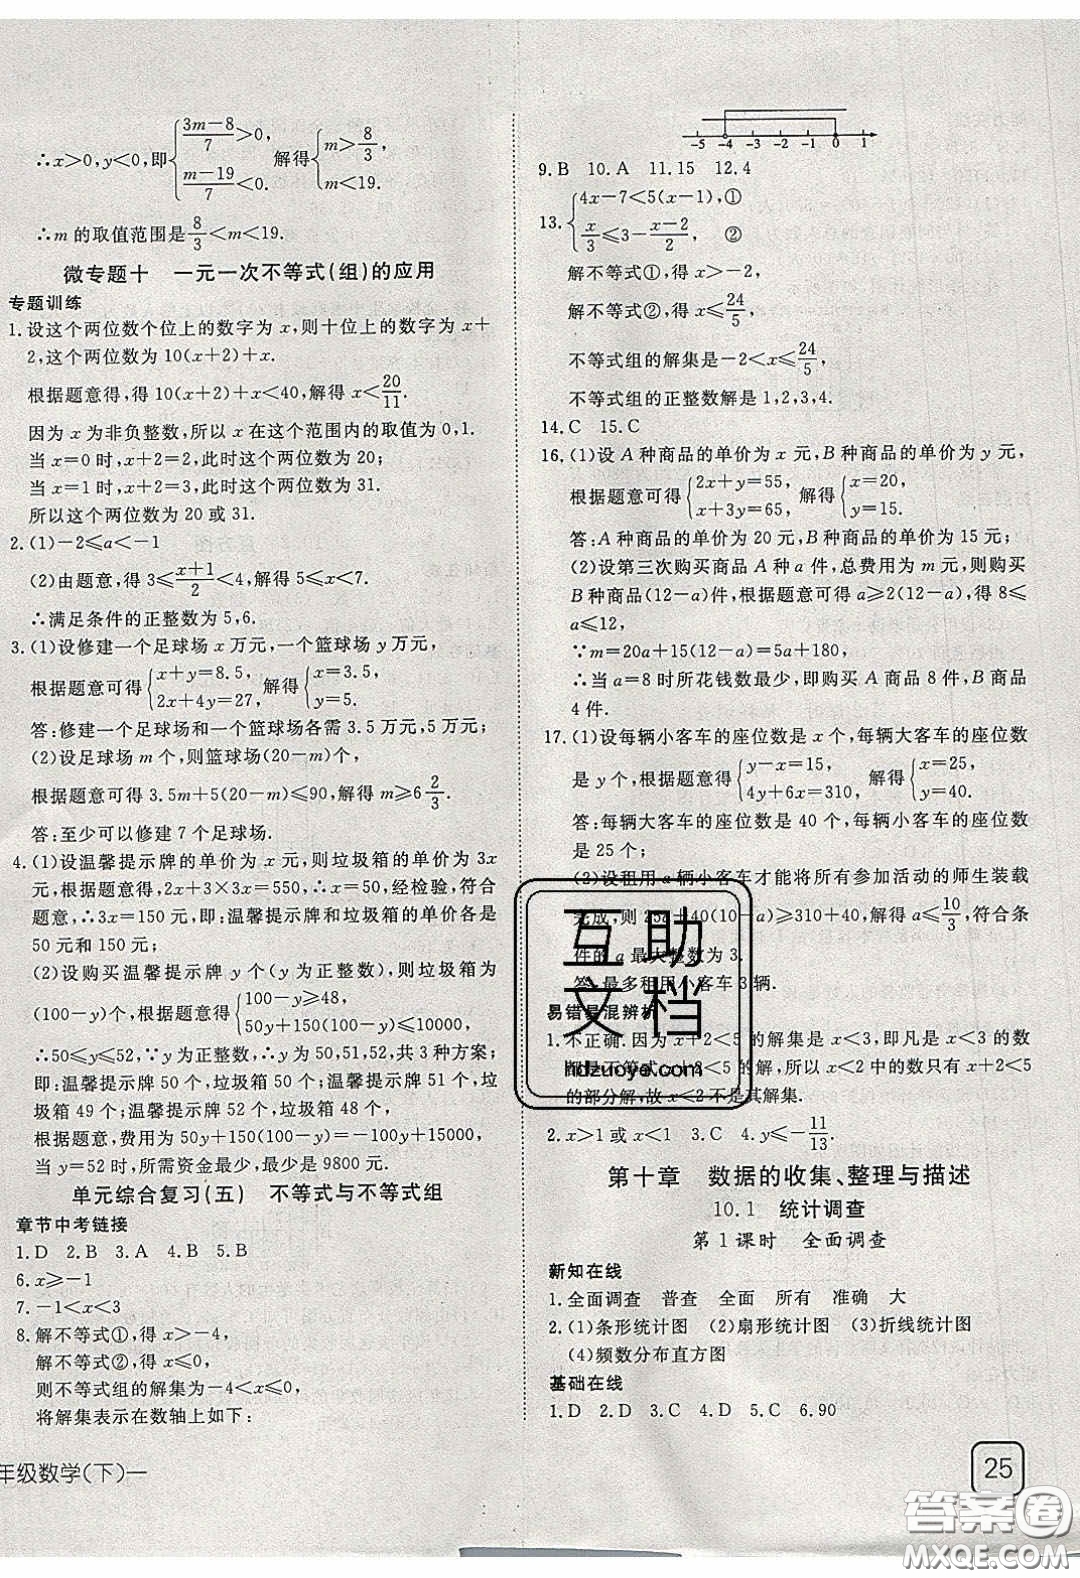 ∴x>0,y<0,即{(3m-8)/7>0, (m-19)/7<0. 解得{m>8/3, m<19.
∴m 的取值范围是8/3<m<19.
微专题十 一元一次不等式(组)的应用
专题训练
1.设这个两位数个位上的数字为 x,则十位上的数字为 x+
2,这个两位数为 10(x+2)+x.
根据题意得,得 10(x+2)+x<40,解得 x<20/11.
因为 x 为非负整数,所以 x 在这个范围内的取值为 0,1.
当 x=0 时,x+2=2,此时这个两位数为 20;
当 x=1 时,x+2=3,此时这个两位数为 31.
所以这个两位数为 20 或 31.
2.(1)-2≤a<-1
(2)由题意,得 3≤(x+1)/2<4,解得 5≤x<7.
∴满足条件的正整数为 5,6.
3.(1)设修建一个足球场 x 万元,一个篮球场 y 万元,
根据题意可得{x+y=8.5, 2x+4y=27, 解得{x=3.5, y=5.
答:修建一个足球场和一个篮球场各需 3.5 万元,5 万元;
(2)设建足球场 m 个,则篮球场(20-m)个,
根据题意可得 3.5m+5(20-m)≤90,解得 m≥6 2/3.
答:至少可以修建 7 个足球场.
4.(1)设温馨提示牌的单价为 x 元,则垃圾箱的单价为 3x
元,根据题意,得 2x+3×3x=550,∴x=50,经检验,符合
题意,∴3x=150 元,即:温馨提示牌和垃圾箱的单价各是
50 元和 150 元;
(2)设购买温馨提示牌 y 个(y 为正整数),则垃圾箱为
(100-y)个,根据题意,得{100-y≥48, 50y+150(100-y)≤10000,
∴50≤y≤52,∵y 为正整数,∴y 为 50,51,52,共 3 种方案;
即:温馨提示牌 50 个,垃圾箱 50 个;温馨提示牌 51 个,垃圾
箱 49 个;温馨提示牌 52 个,垃圾箱 48 个,
根据题意,费用为 50y+150(100-y)=-100y+15000,
当 y=52 时,所需资金最少,最少是 9800 元.
单元综合复习(五) 不等式与不等式组
章节中考链接
1.D 2.B 3.A 4.B 5.B
6.x≥-1
7.-1<x<3
8.解不等式①,得 x>-4,
解不等式②,得 x≤0,
则不等式组的解集为-4<x≤0,
将解集表示在数轴上如下:
年级数学(下)一
-5 -4 -3 -2 -1 0 1
9.B 10.A 11.15 12.4
13.{4x-7<5(x-1),① x/3≤3-(x-2)/2, ②
解不等式①,得 x>-2,
解不等式②,得 x≤24/5,
不等式组的解集是-2<x≤24/5,
不等式组的正整数解是 1,2,3,4.
14.C 15.C
16.(1)设 A 种商品的单价为 x 元,B 种商品的单价为 y 元,
根据题意可得{2x+y=55, x+3y=65, 解得{x=20, y=15.
答:A 种商品的单价为 20 元,B 种商品的单价为 15 元;
(2)设第三次购买商品 A 种 a 件,总费用为 m 元,则购买
B 种商品(12-a)件,根据题意可得 a≥2(12-a),得 8≤
a≤12,
∵m=20a+15(12-a)=5a+180,
∴当 a=8 时所花钱数最少,即购买 A 商品 8 件,B 商品
4 件.
17.(1)设每辆小客车的座位数是 x 个,每辆大客车的座位数
是 y 个,根据题意可得{y-x=15, 4y+6x=310, 解得{x=25, y=40.
答:每辆大客车的座位数是 40 个,每辆小客车的座位数
是 25 个;
(2)设租用 a 辆小客车才能将所有参加活动的师生装载
完成,则 25a+40(10-a)≥310+40,解得 a≤10/3,符合条
件的 a 最大整数为 3.
答:最多租用小客车 3 辆.
易错易混辨析
1.不正确.因为 x+2<5 的解集是 x<3,即凡是 x<3 的数
都是不等式 x+2<5 的解,所以 x<2 只是 x+2<5
的部分解,故 x<2 不是其解集.
2.x>1 或 x<1 3.C 4.y≤-11/13.
第十章 数据的收集、整理与描述
10.1 统计调查
第 1 课时 全面调查
新知在线
1.全面调查 普查 全面 所有 准确 大
2.(1)条形统计图 (2)扇形统计图 (3)折线统计图
(4)频数分布直方图
基础在线
1.D 2.D 3.C 4.D 5.C 6.90
25
互助
文档
hdzuoye.com
答案圈
MXQE.COM